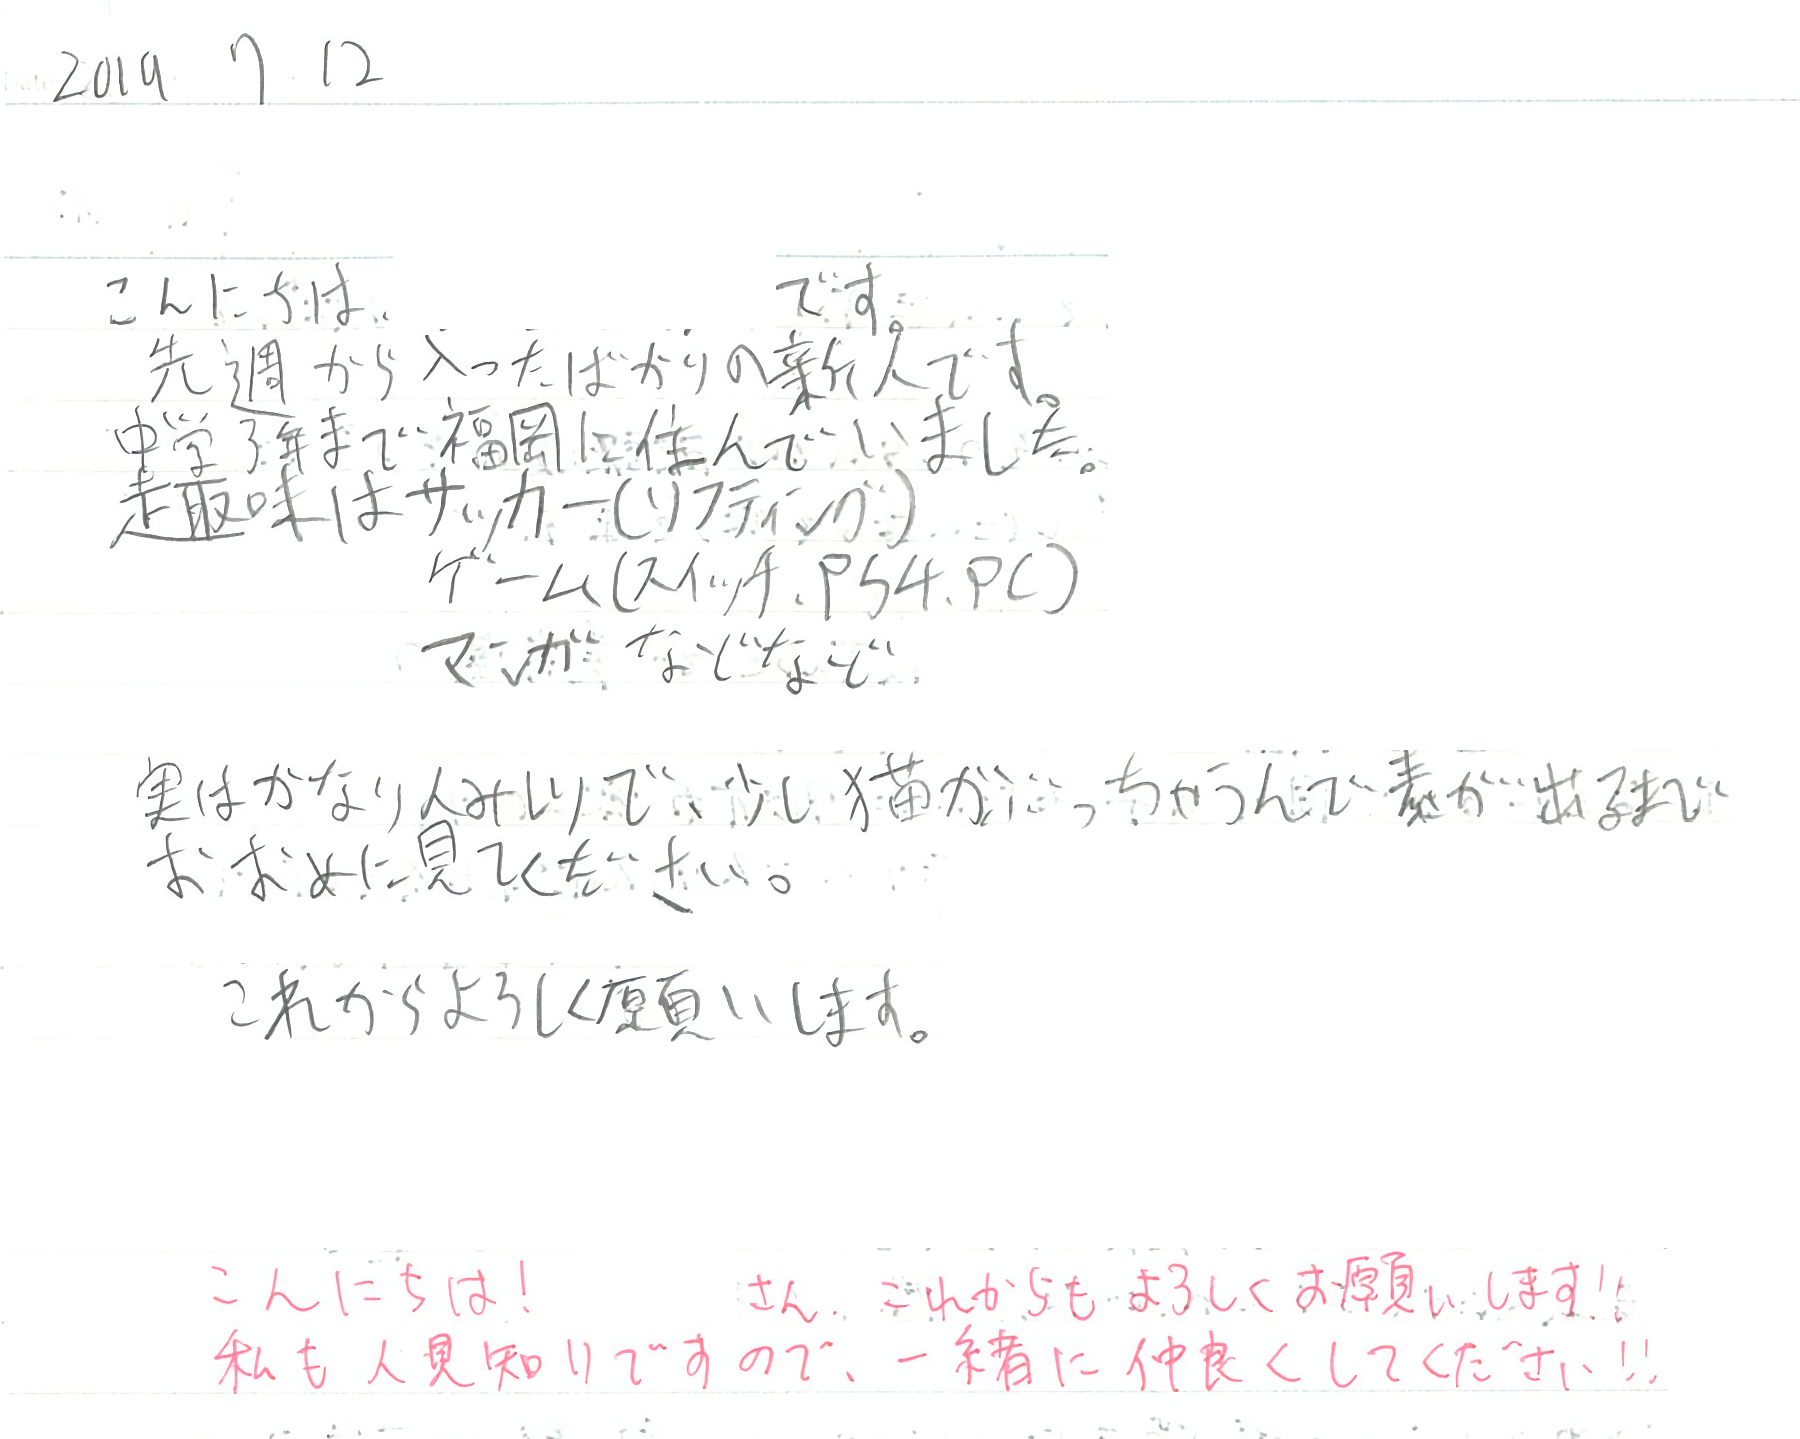 2019 7 12
こんにちは、 です。
先週から入ったばかりの新人です。
中学3年まで福岡に住んでいました。
趣味はサッカー(リフティング)
ゲーム(スイッチ、PS4、PC)
マンガ などなど
実はかなり人みしりで、少し猫かぶっちゃうんで素が出るまで
おおめに見てください。
これからよろしく願いします。
こんにちは! さん、これからもよろしくお願いします!!
私も人見知りですので、一緒に仲良くしてください!!